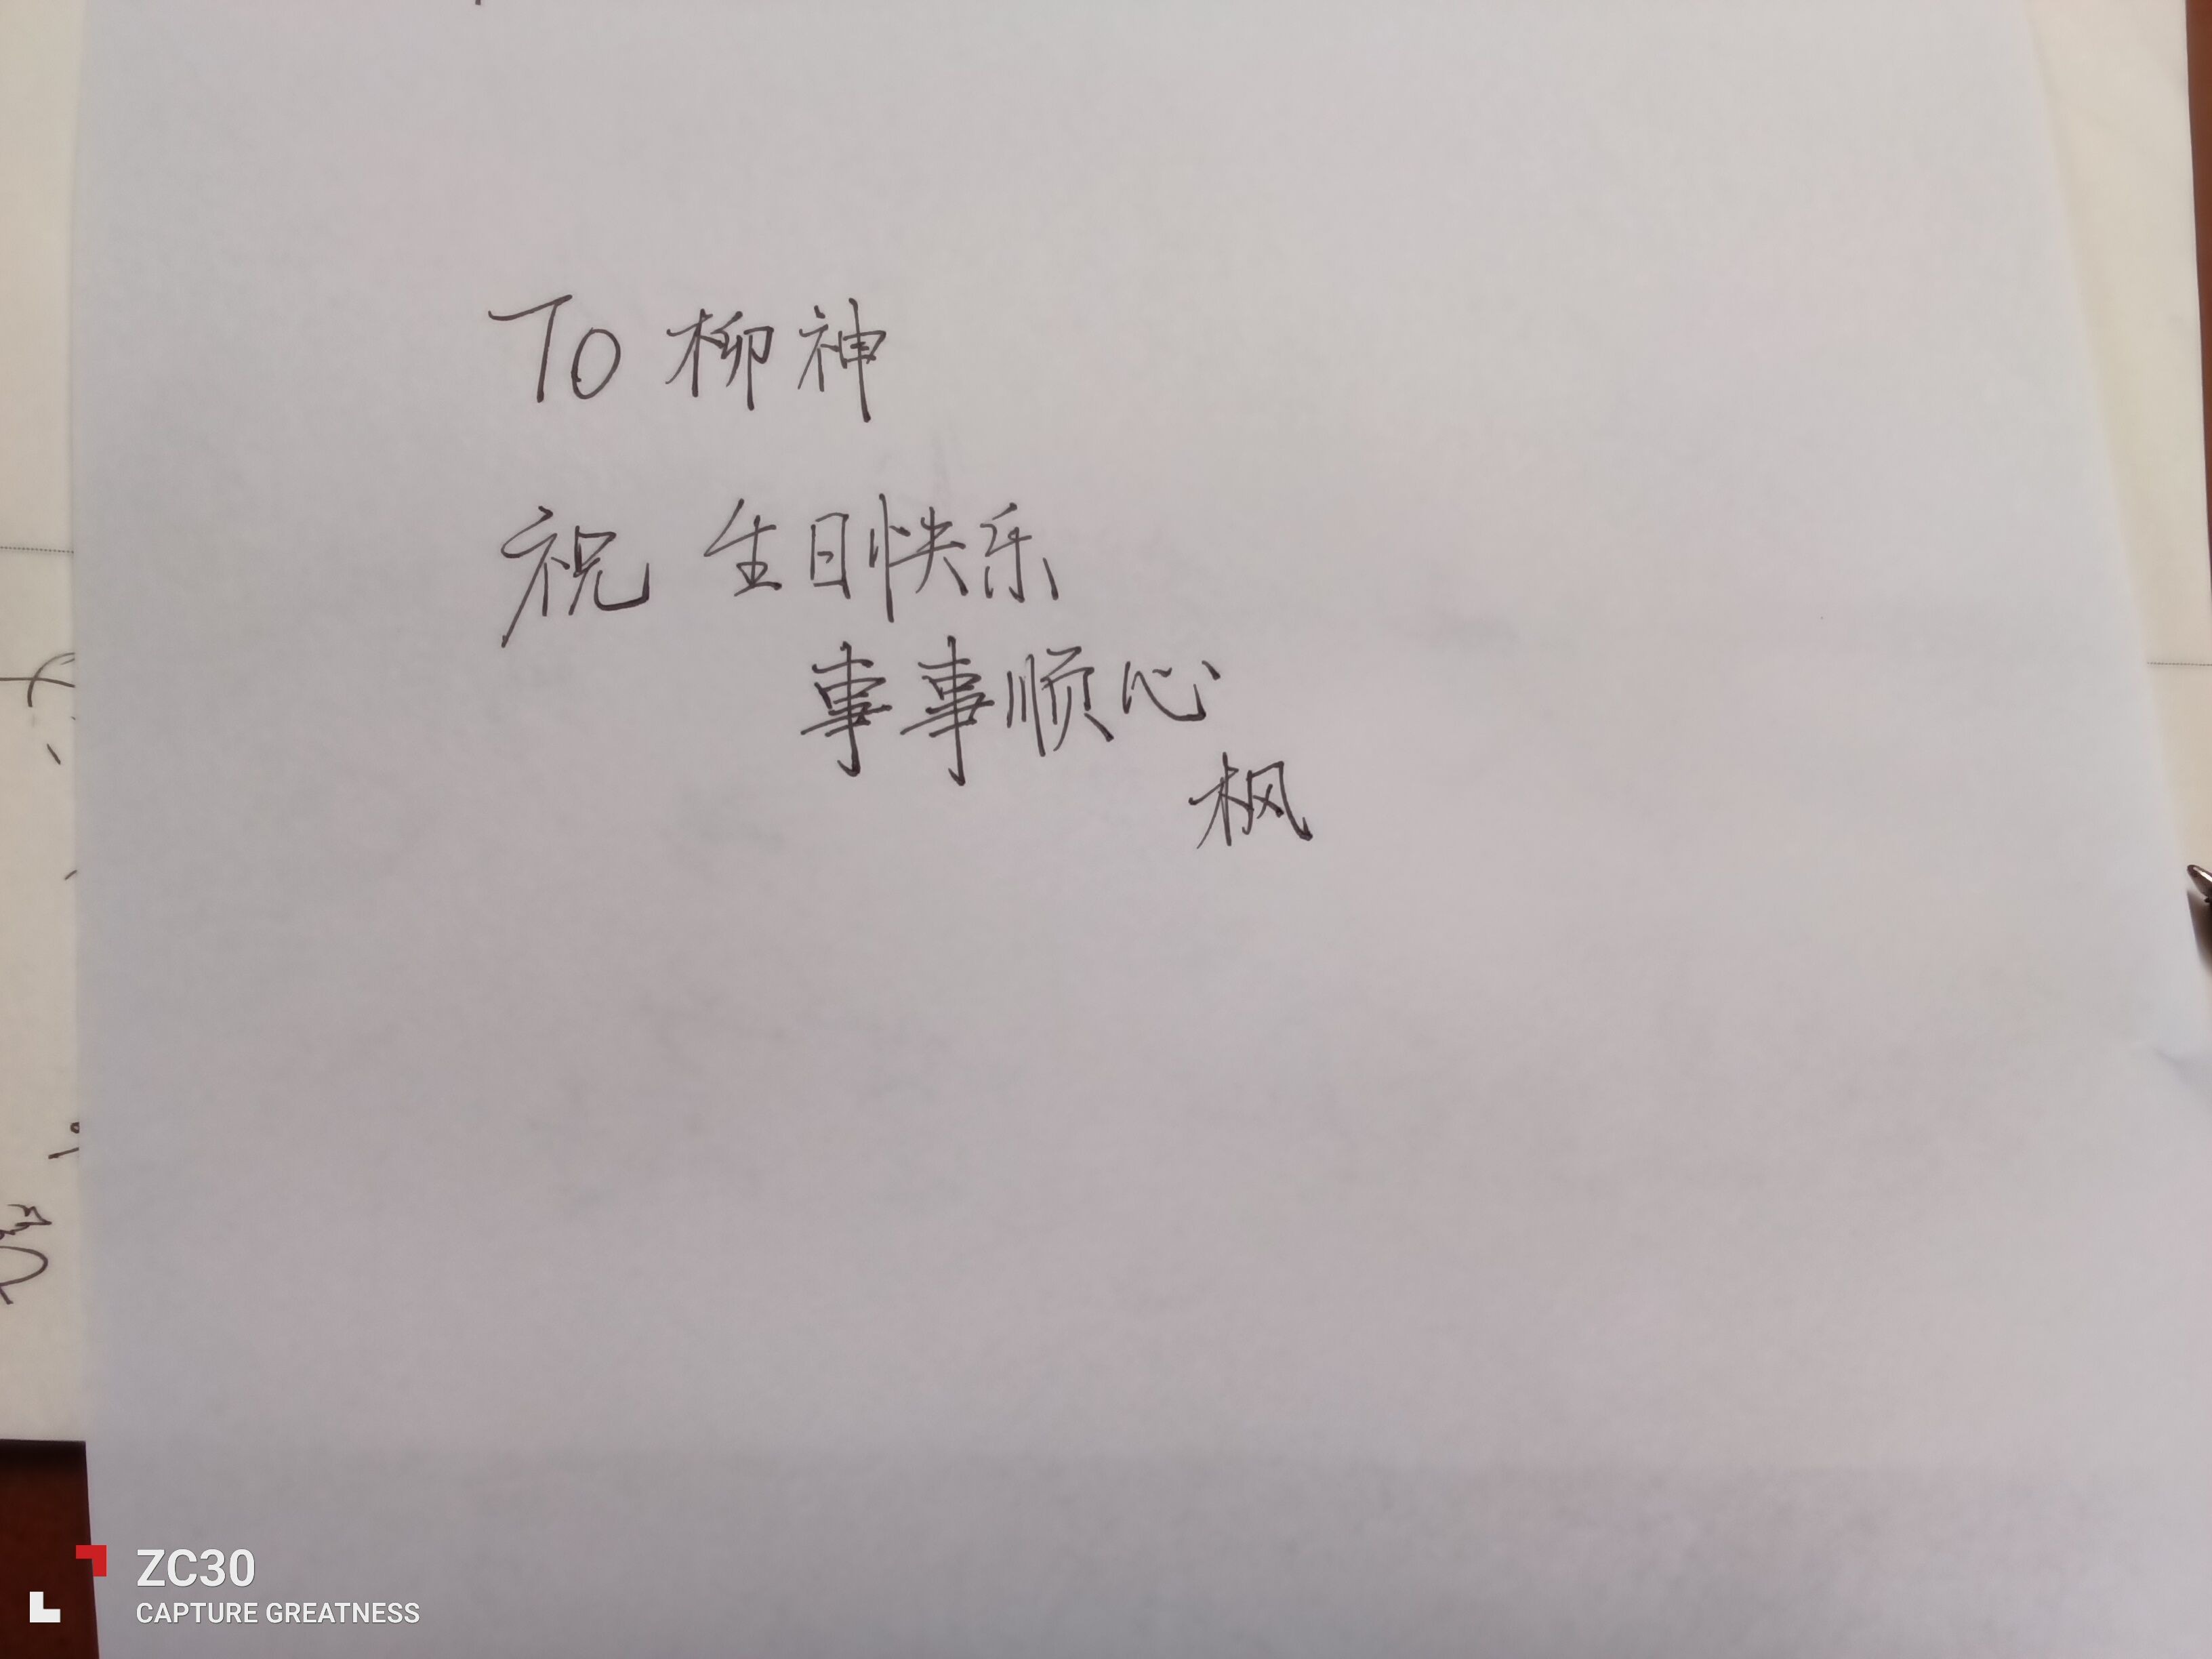 To 柳神
祝 生日快乐
事事顺心
枫
ZC30
CAPTURE GREATNESS